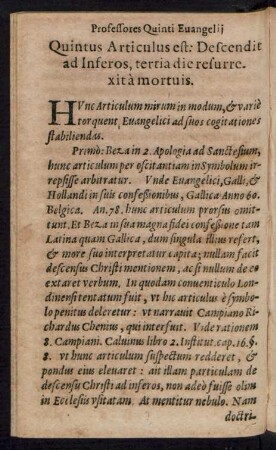 Professores Quinti Euangelij
Quintus Articulus est: Descendit
ad Inferos, tertia die resurre.
xit à mortuis.
HVnc Articulum mirum in modum, & variè
torquent Euangelici ad suos cogitationes
stabiliendas.
Primò: Beza in 2. Apologia ad Sanctesium,
hunc articulum per oscitantiam in Symbolum ir-
repsisse arbitratur. Vnde Euangelici, Galli, &
Hollandi in suis confessionibus, Gallica Anno 60.
Belgica. An. 78. hunc articulum prorsus omit-
tunt. Et Beza in sua magna fidei confessione tam
Latina quam Gallica, dum singula illius refert,
& more suo interpretatur capita; nullam facit
descensus Christi mentionem, ac si nullum de eo
extaret verbum. In quodam conuenticulo Lon-
dinensi tentatum fuit, vt hic articulus è symbo-
lo penitus deleretur: vt narrauit Campiano Ri-
chardus Chenius, qui interfuit. Vide rationem
8. Campiani. Caluinus libro 2. Institut. cap. 16. §.
8. vt hunc articulum suspectum redderet, &
pondus eius eleuaret: ait illam particulam de
descensu Christi ad inferos, non adeò fuisse olim
in Ecclesiis vsitatam. At mentitur nebulo. Nam
doctri-